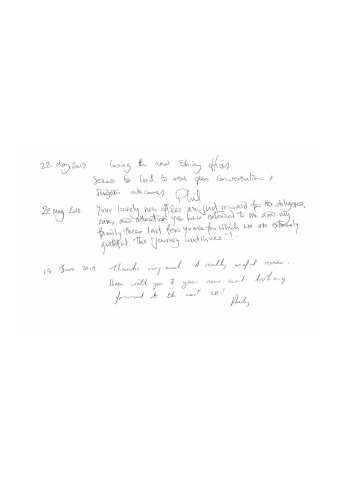 22 May 2019 Loving the new shiny offices
Seems to lead to more open conversation +
brighter outcomes Phil
28 May 2019 Your lovely new offices are just reward for the diligence,
care, and attention you have extended to me and my
family these last few years for which we are extremely
grateful. The "journey continues"!
18 June 2019 Thanks very much. A really useful review.
Been with you 7 years now and looking
forward to the next 20!